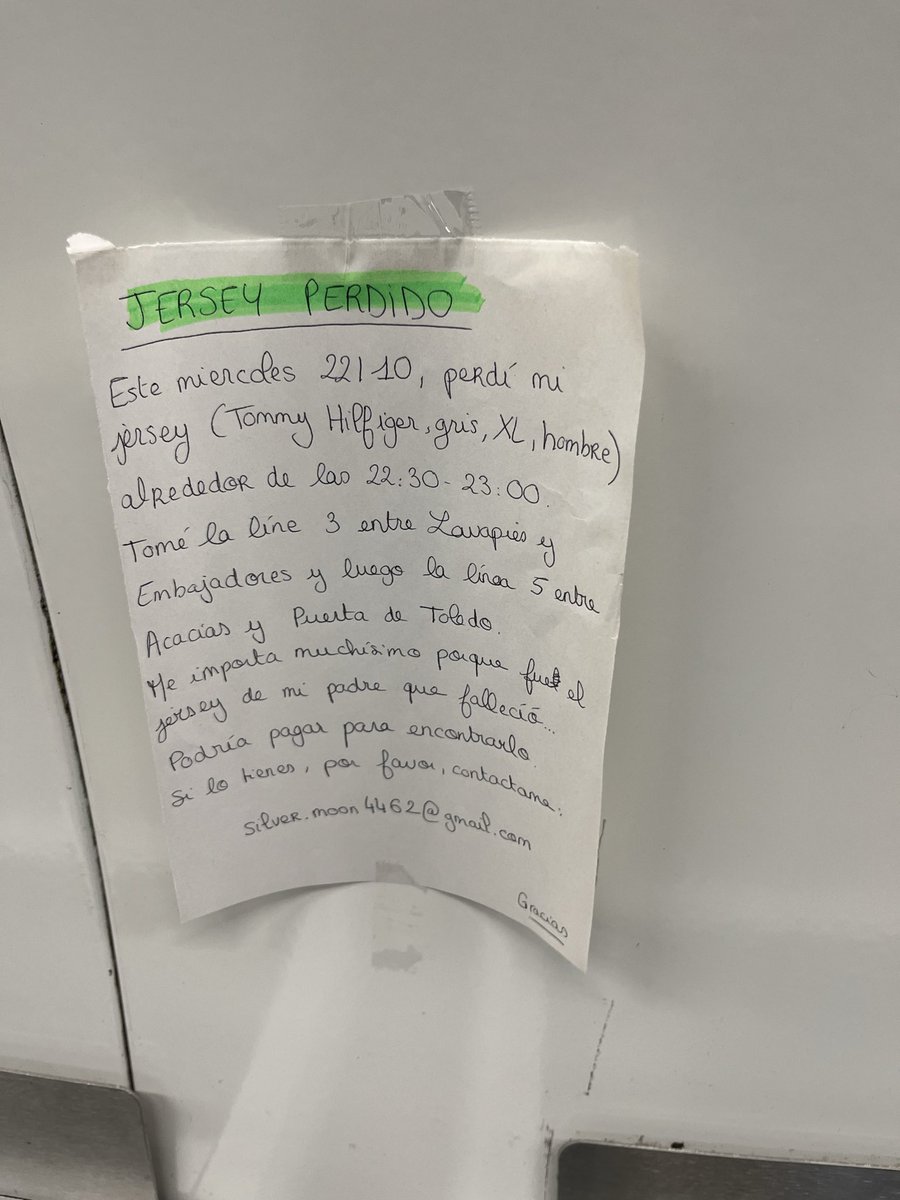 JERSEY PERDIDO
Este miercoles 22/10, perdí mi
jersey (Tommy Hilfiger, gris, XL, hombre)
alrededor de las 22:30-23:00.
Tomé la line 3 entre Lavapiés y
Embajadores y luego la línea 5 entre
Acacias y Puerta de Toledo.
Me importa muchísimo porque fue el
jersey de mi padre que falleció...
Podría pagar para encontrarlo.
Si lo tienes, por favor, contactame:
silver.moon4462@gmail.com
Gracias